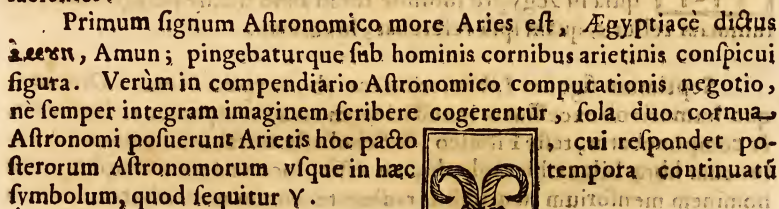 Primum ſignum Aſtronomico more Aries eſt, Ægyptiacè dictus
, Amun; pingebaturque ſub hominis cornibus arietinis conſpicui
figura. Verùm in compendiario Aſtronomico computationis negotio,
nè ſemper integram imaginem ſcribere cogerentur, ſola duo cornua
Aſtronomi poſuerunt Arietis hòc pacto , cui reſpondet po-
ſterorum Aſtronomorum vſque in hæc tempora continuatũ
ſymbolum, quod ſequitur ♈.